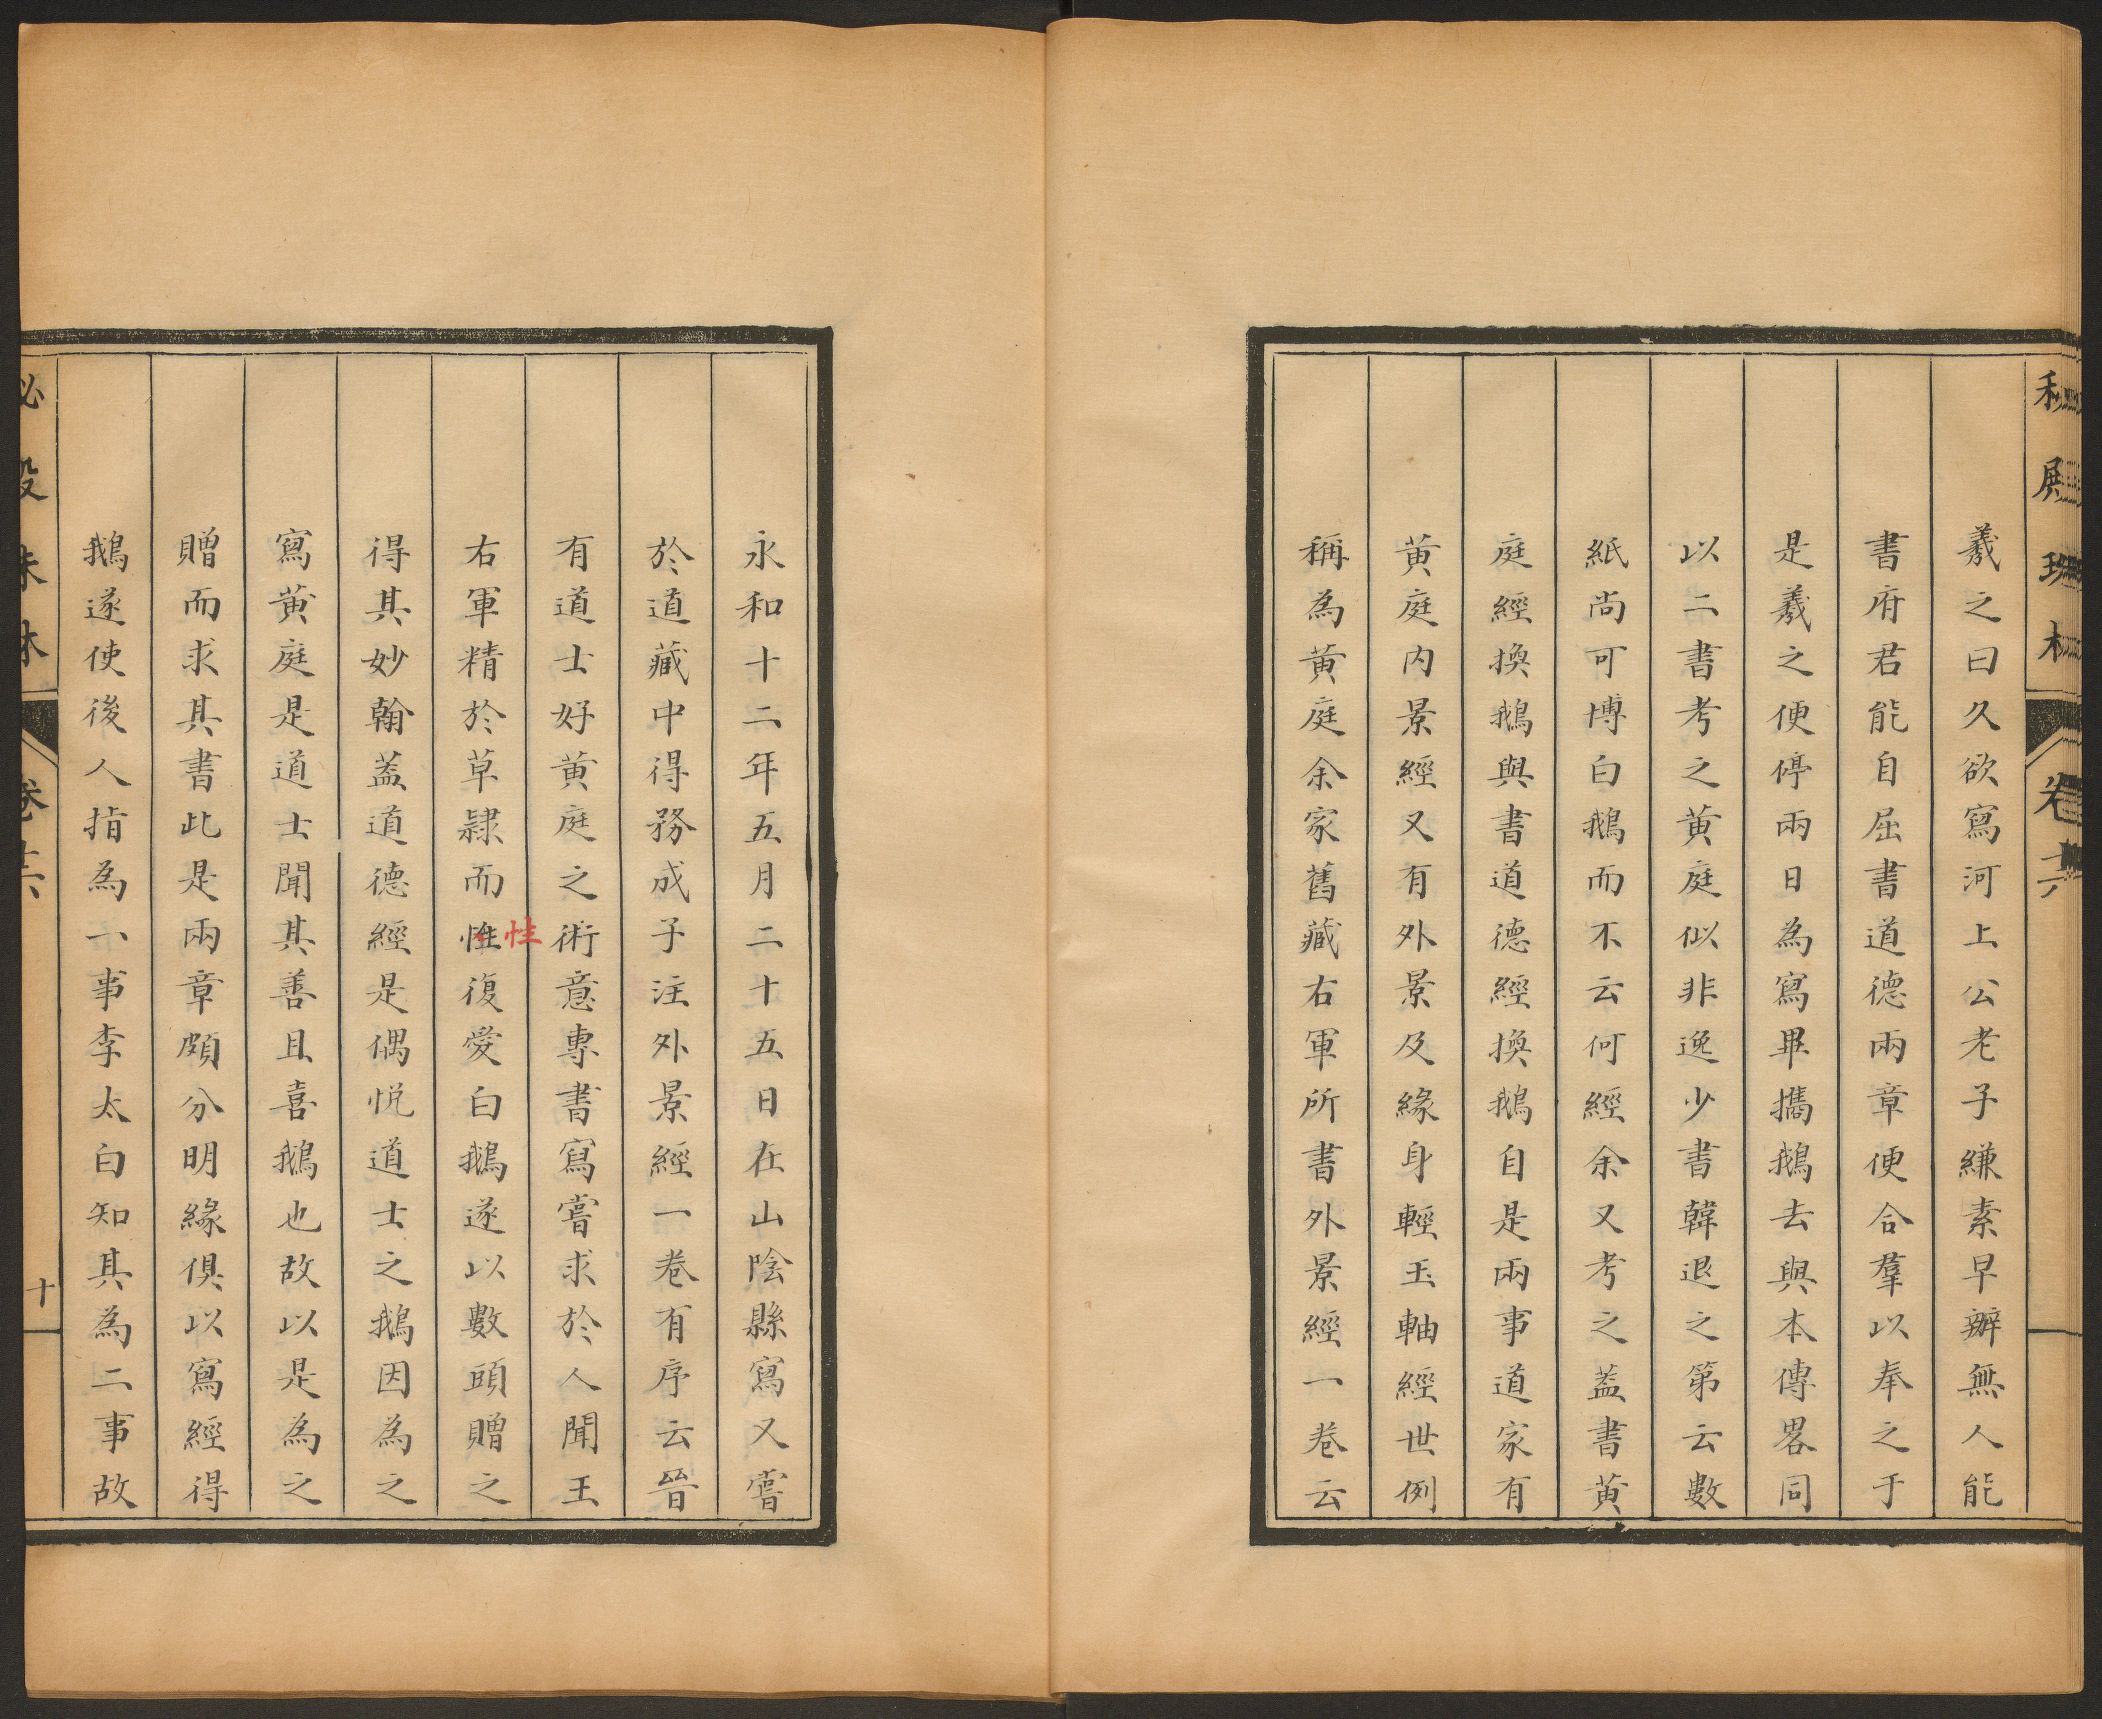 羲之曰久欲寫河上公老子縑素早辦無人能
書府君能自屈書道德兩章便合羣以奉之于
是羲之便停兩日為寫畢攜鵝去與本傳畧同
以二書考之黄庭似非逸少書韓退之第云數
紙尚可博白鵝而不云何經余又考之葢書黄
庭經換鵝與書道德經換鵝自是兩事道家有
黄庭内景經又有外景及緣身輕玉軸經世例
稱為黄庭余家舊藏右軍所書外景經一卷云
永和十二年五月二十五日在山陰縣寫又嘗
於道藏中得務成子注外景經一卷有序云晉
有道士好黄庭之術意專書寫嘗求於人聞王
右軍精於草隷而惟復愛白鵝遂以數頭贈之
性
得其妙翰葢道德經是偶悅道士之鵝因為之
寫黄庭是道士聞其善且喜鵝也故以是為之
贈而求其書此是兩章頗分明緣俱以寫經得
鵝遂使後人指為一事李太白知其為二事故
殿珠林
卷十六
十